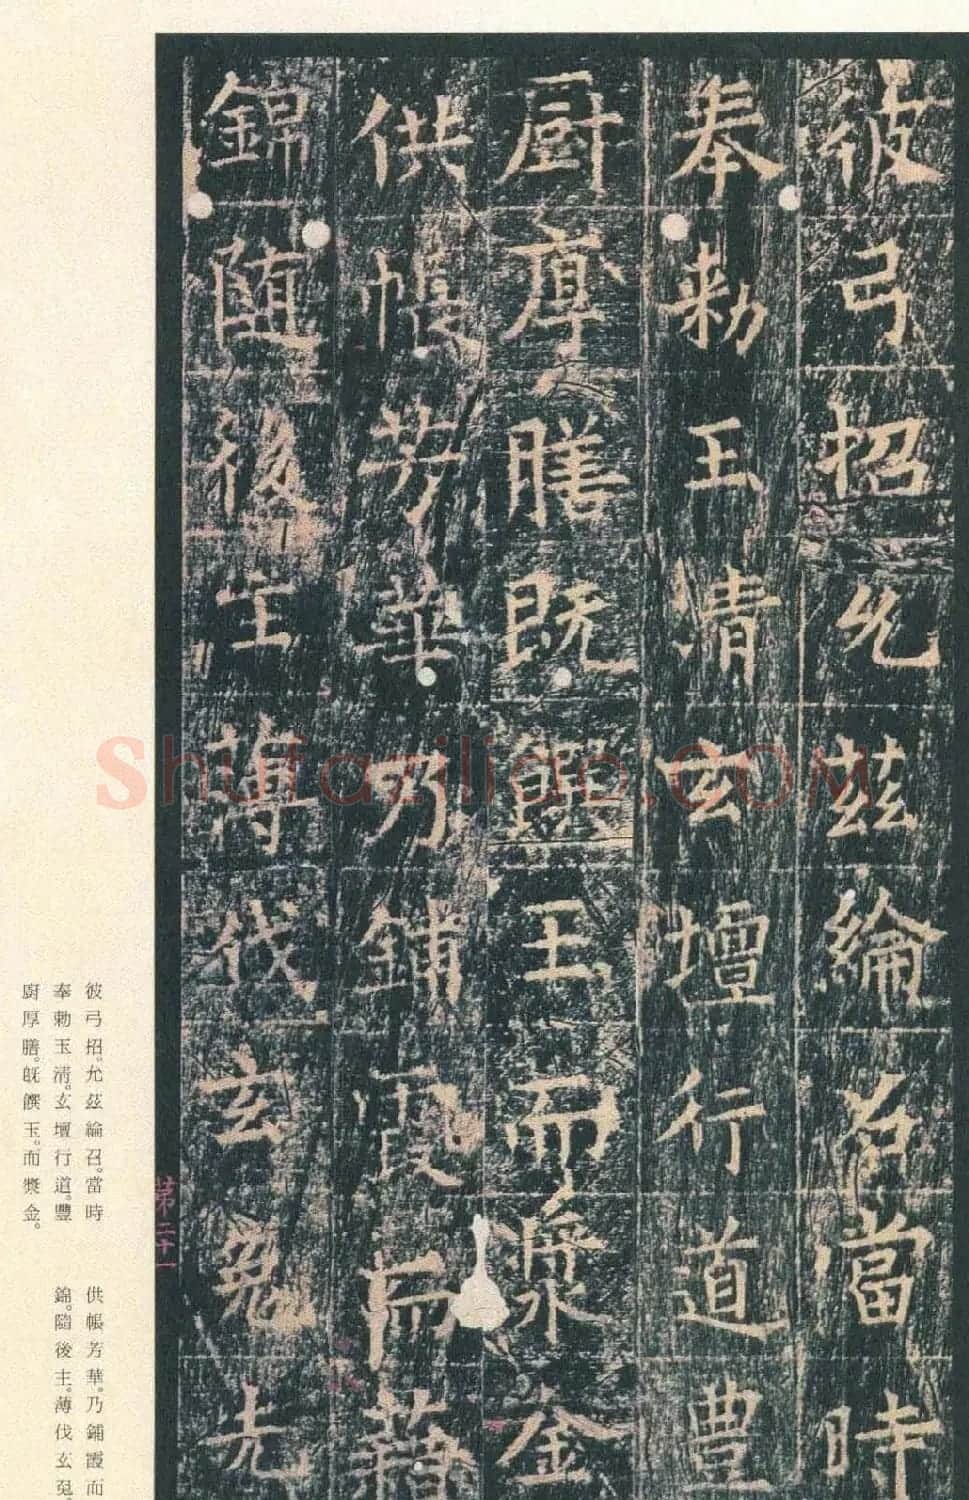 彼弓招允茲綸召當時
奉勅玉清玄壇行道豊
厨厚膳既饌玉而漿金
供帳芳華乃鋪霞而藉
錦隨後主薄伐玄兔先
彼弓招。允茲綸召。當時
奉勅玉清。玄壇行道。豐
廚厚膳。既饌玉。而漿金。
供帳芳華。乃鋪霞而
錦。隨後主。薄伐玄兔。
第二十一
Shufaziliao.COM